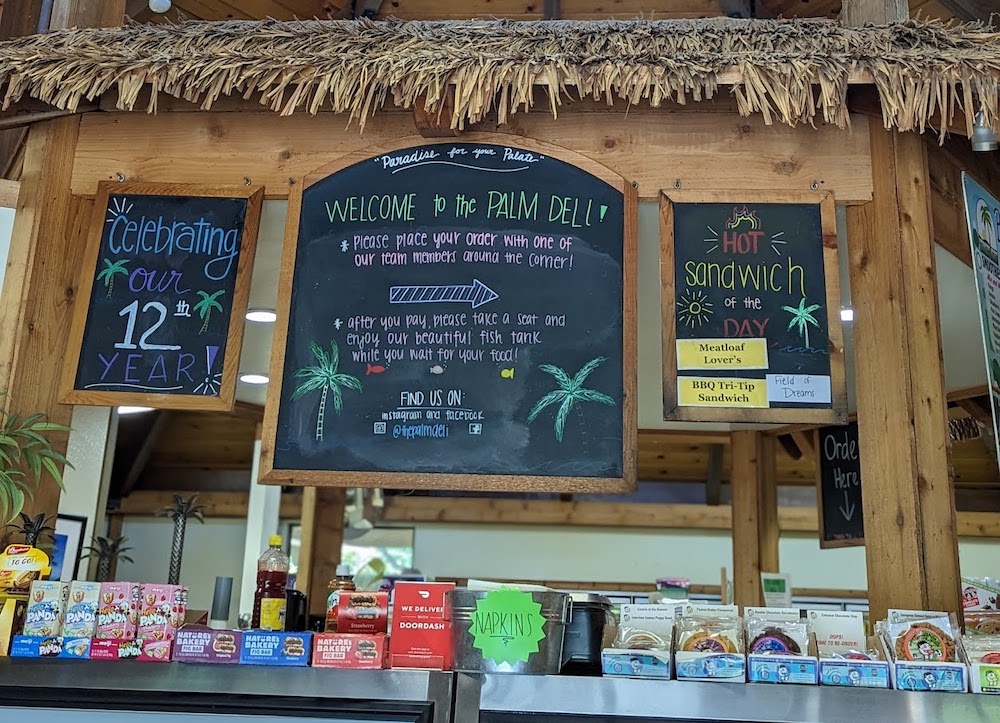 Celebrating
our
12th
YEAR!
"Paradise for your Palate"
WELCOME to the PALM DELI!
* Please place your order with one of
our team members around the corner!
* after you pay, please take a seat and
enjoy our beautiful fish tank
while you wait for your food!
FIND US ON:
instagram and facebook
@thepalmdeli
HOT
Sandwich
OF the
DAY
Meatloaf
Lover's
BBQ Tri-Tip
Sandwich
Field of
Dreams
Orde
Here
TO GO!
PANDA
PANDA
PANDA
PANDA
NATURE'S
BAKERY
FIG BAR
NATURE'S
BAKERY
FIG BAR
Strawberry
NATURE'S
BAKERY
FIG BAR
WE DELIVER
WITH
DOORDASH
NAPKINS
OOPS!